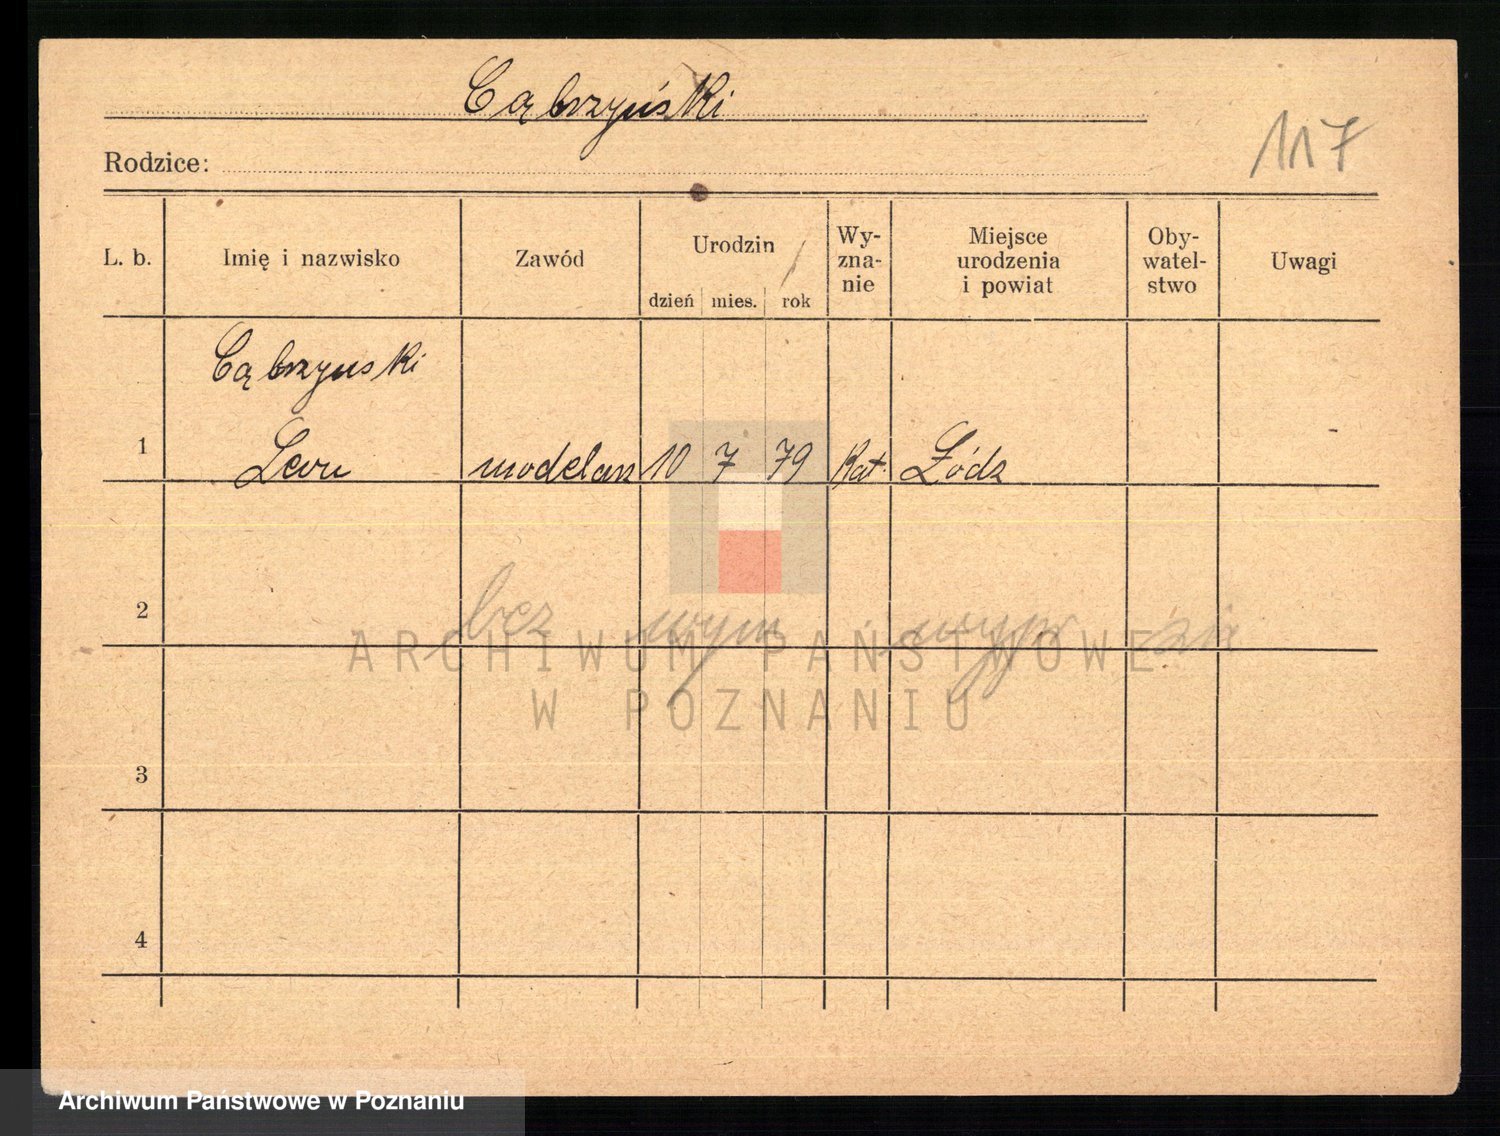 Cąbrzyński
117
Rodzice:
L. b. Imię i nazwisko Zawód Urodzin dzień mies. rok Wy-zna-nie Miejsce urodzenia i powiat Oby-watel-stwo Uwagi
Cąbrzynski
1 Leon modelarz 10 7 79 Kat. Łódz
2 bez wym
ARCHIWUM PAŃSTWOWE
W POZNANIU
3
4
Archiwum Państwowe w Poznaniu